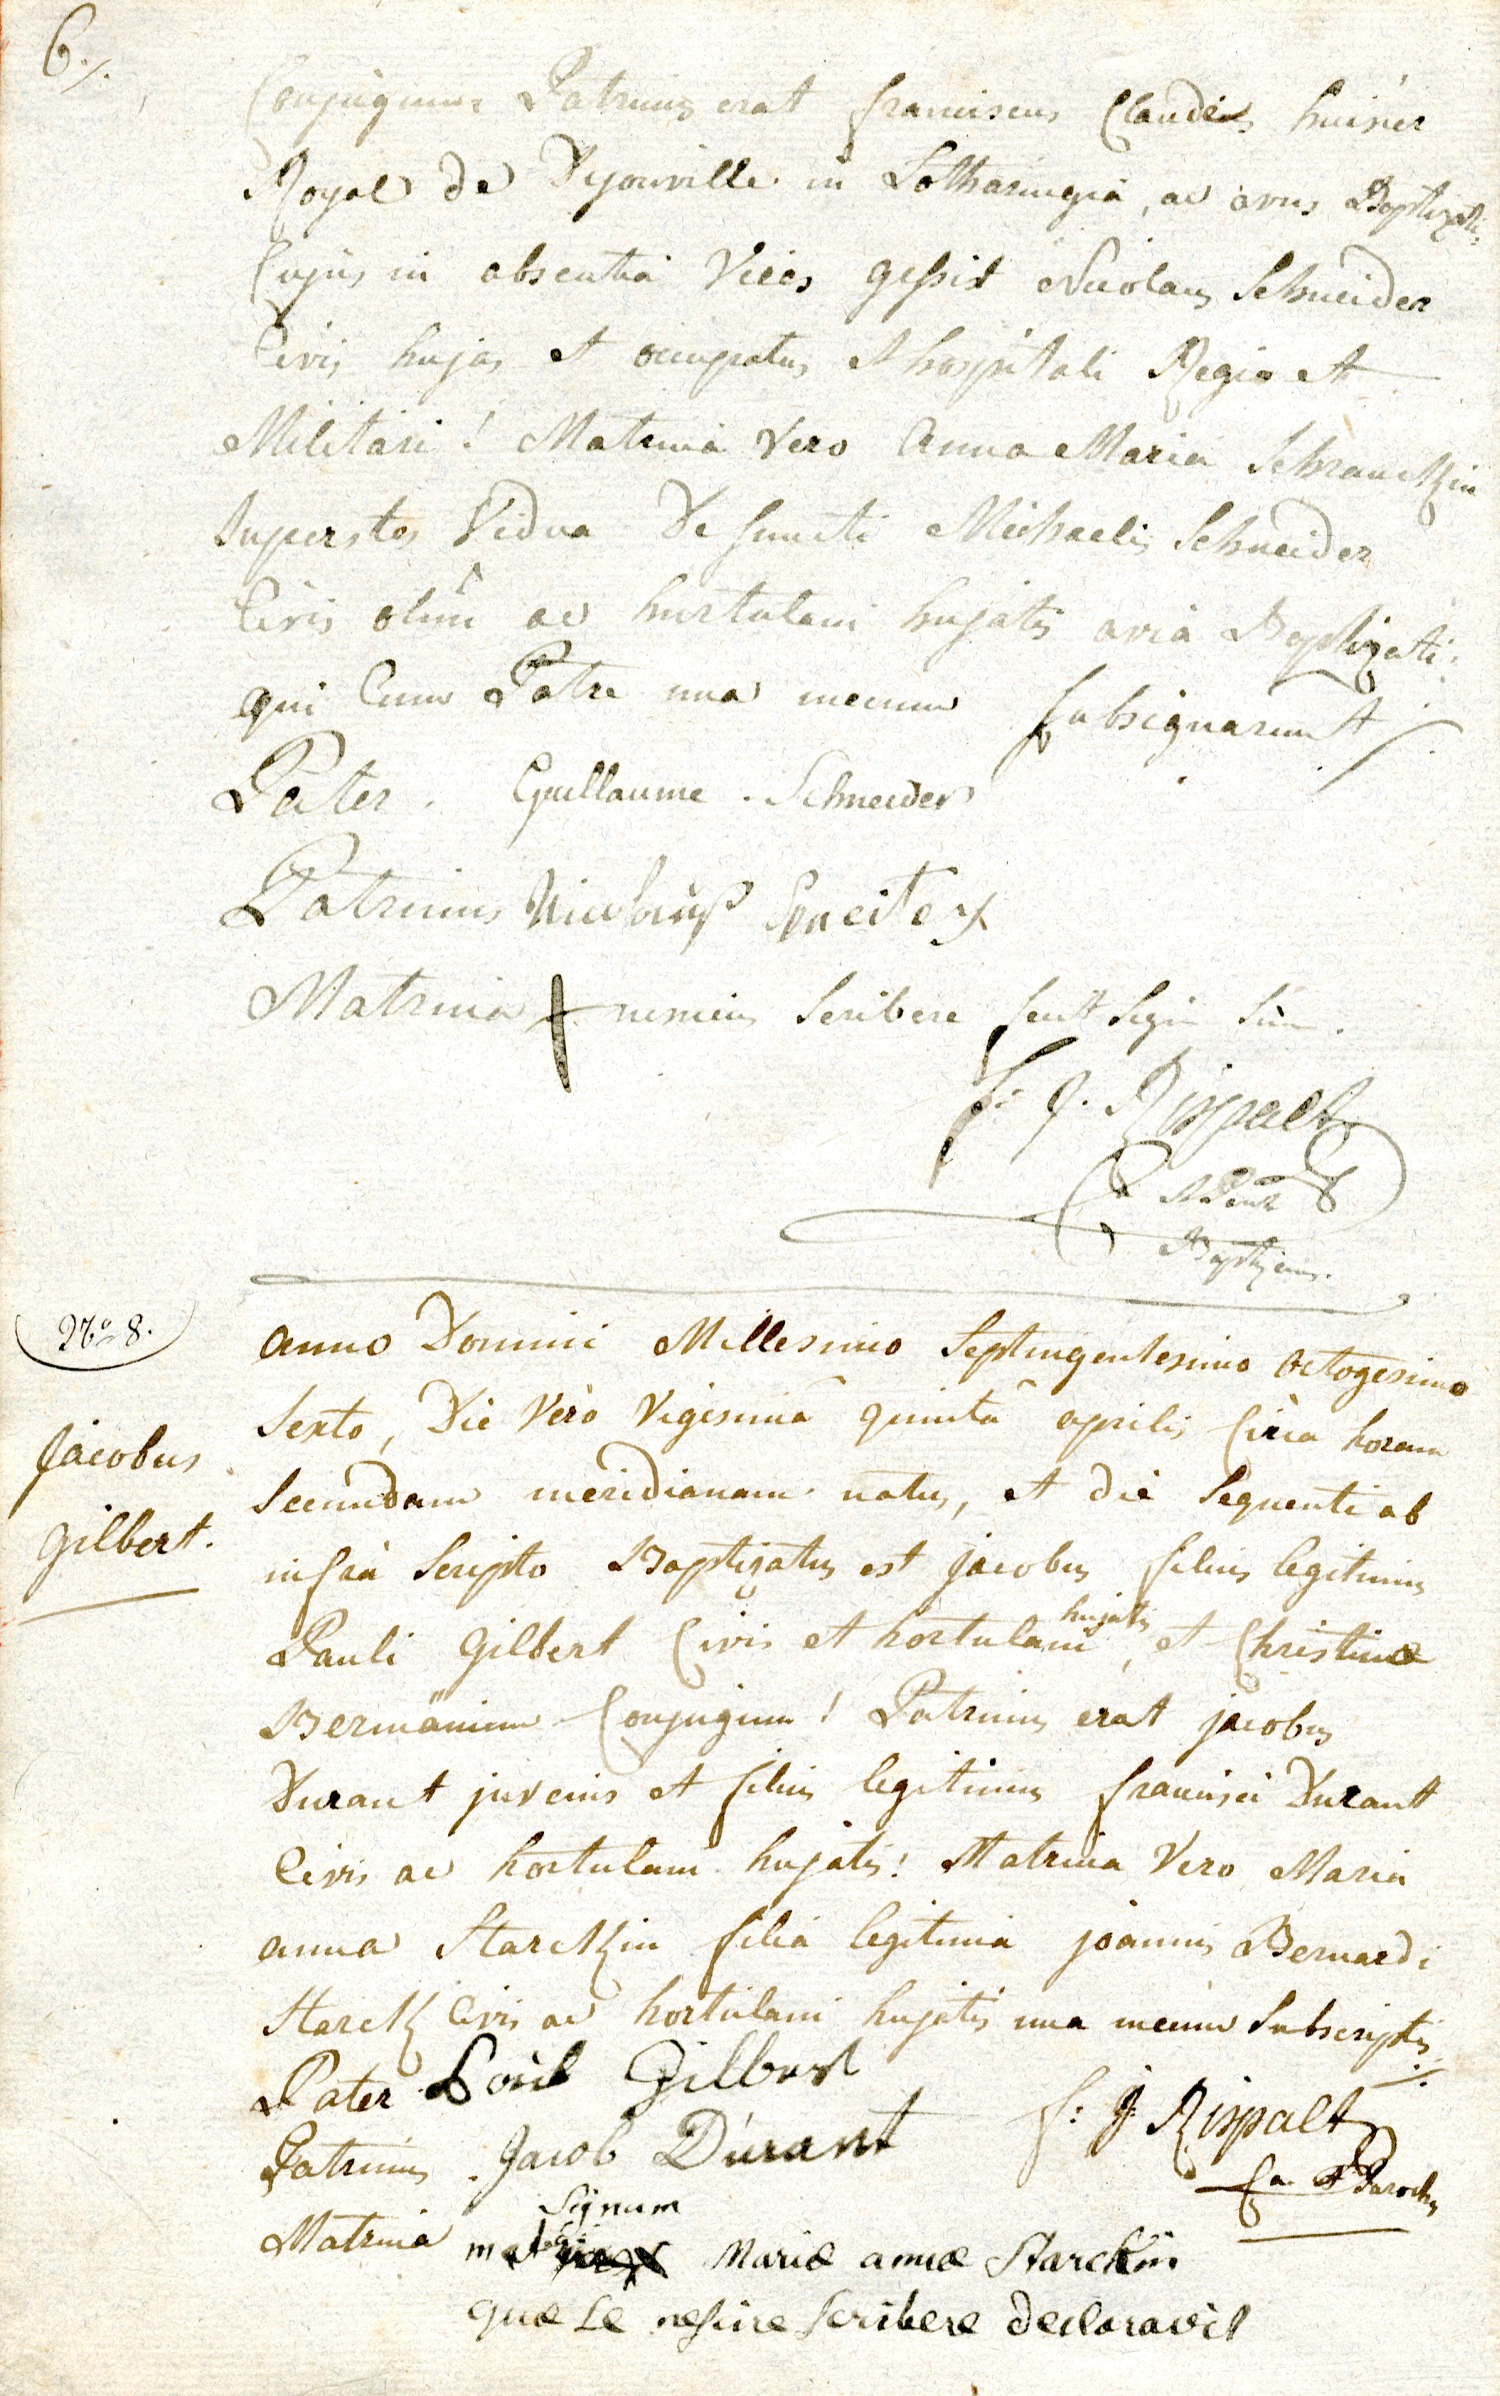 6 ./.
Conjugum Patrinus erat franciscus Claudius huisier
Royal de Dyonville in Lotharingia, ac avus Baptizati,
Cujus in absentia Vices gessit Nicolaus Schneider
Civis hujas et occupatus A hospitali Regio et
Militari! Matrina Vero Anna Maria Schranckin
Superstes Vidua Defuncti Michaelis Schneider
Civis olim ac hortulani hujatis avia Baptizati:
qui Cum Patre una mecum subsignarunt
Pater. Guillaume. Schneider
Patrinus Nicolauß Schneiter
Matrina + nescius Scribere
f: J. Rispalt
Baptizans.
No 8.
Jacobus
Gilbert.
Anno Domini Millesimo Septingentesimo octogesimo
Sexto, Die Vero Vigesimâ quintâ aprilis Circa horam
Secundam meridianam natus, et die Sequenti ab
infra Scripto Baptizatus est Jacobus filius legitimus
Pauli Gilbert Civis et hortulani hujatis, et Christinæ
Bermänin Conjugum! Patrinus erat jacobus
Durant juvenis et filius legitimus francisci Durant
Civis ac hortulani hujatis! Matrina Vero Maria
anna Starckin filia legitima joannis Bernardi
Starck Civis ac hortulani hujatis una mecum Subscriptis
Pater Poúl Gilbert
Patrinus. Jacob Durant
f: J: Rispalt
Parochus
Signum
Matrina Mariæ annæ Starckin
quæ se nescire scribere declaravit